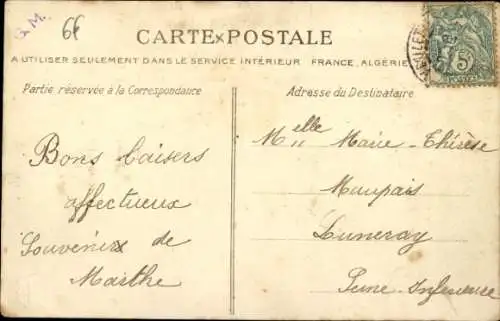 G. M.
66
CARTE POSTALE
A UTILISER SEULEMENT DANS LE SERVICE INTÉRIEUR FRANCE, ALGÉRIE
5
Partie réservée à la Correspondance
Adresse du Destinataire
Bons baisers
affectueux
Souvenirs de
Marthe
Melle Marie-Thérèse
Maupais
Luneray
Seine-Inférieure